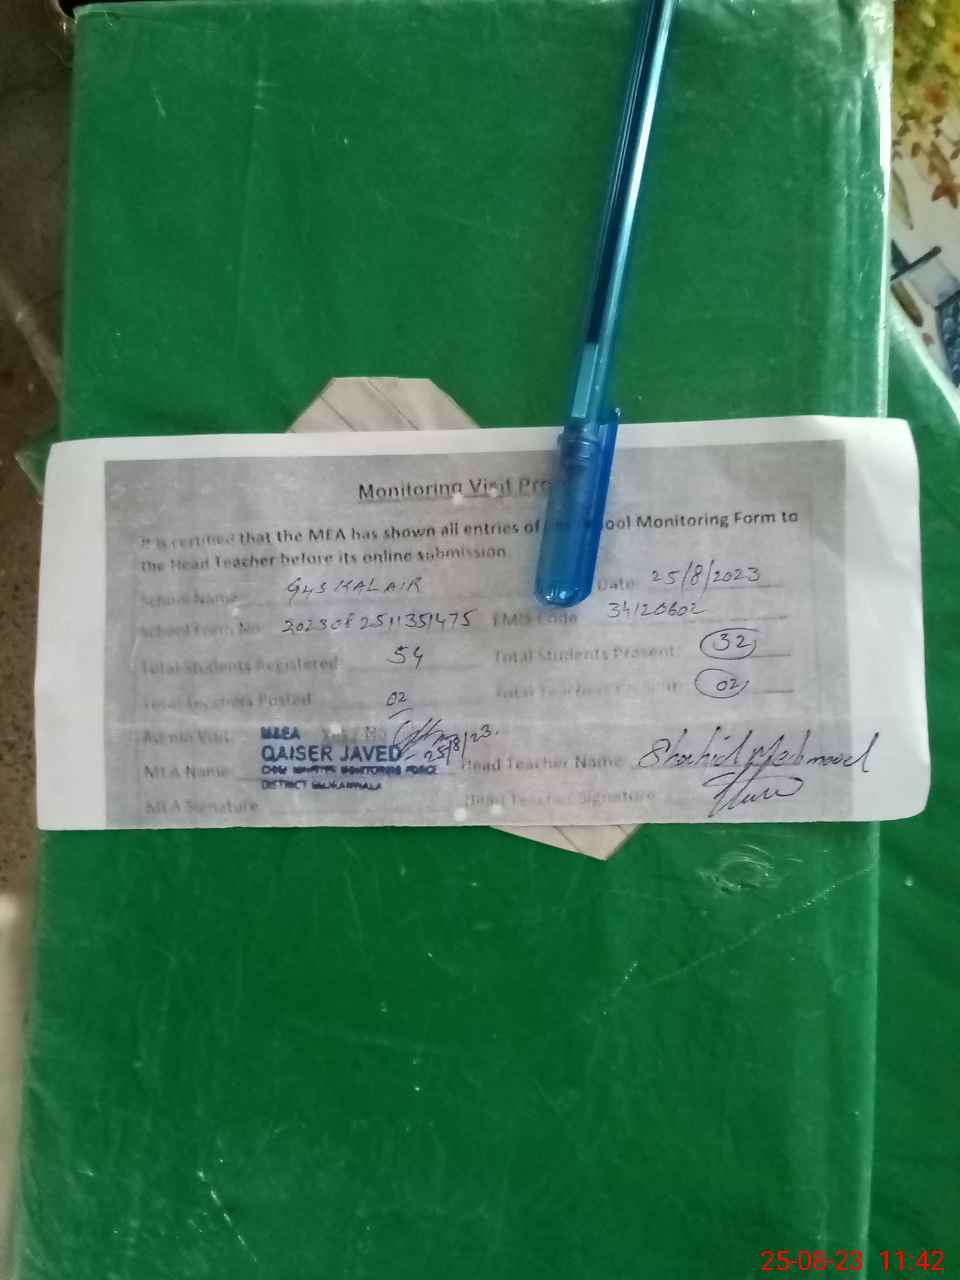 Monitoring Visit Pro
It is certified that the MEA has shown all entries of ool Monitoring Form to
the Head Teacher before its online submission
School Name GHS KALAIR Date 25/8/2023
School Form No 2023 08 2511351475 EMIS Code 34120602
Total Students Registered 54 Total Students Present: 32
Total Teachers Posted 02 Total Teachers Present: 02
Admin Visit: Yes / No
M&EA
QAISER JAVED 25/8/23.
CHIEF MINISTER MONITORING FORCE
DISTRICT GUJRANWALA
MEA Name: Head Teacher Name Shahid Mehmood
MEA Signature Head Teacher Signature
25-08-23 11:42